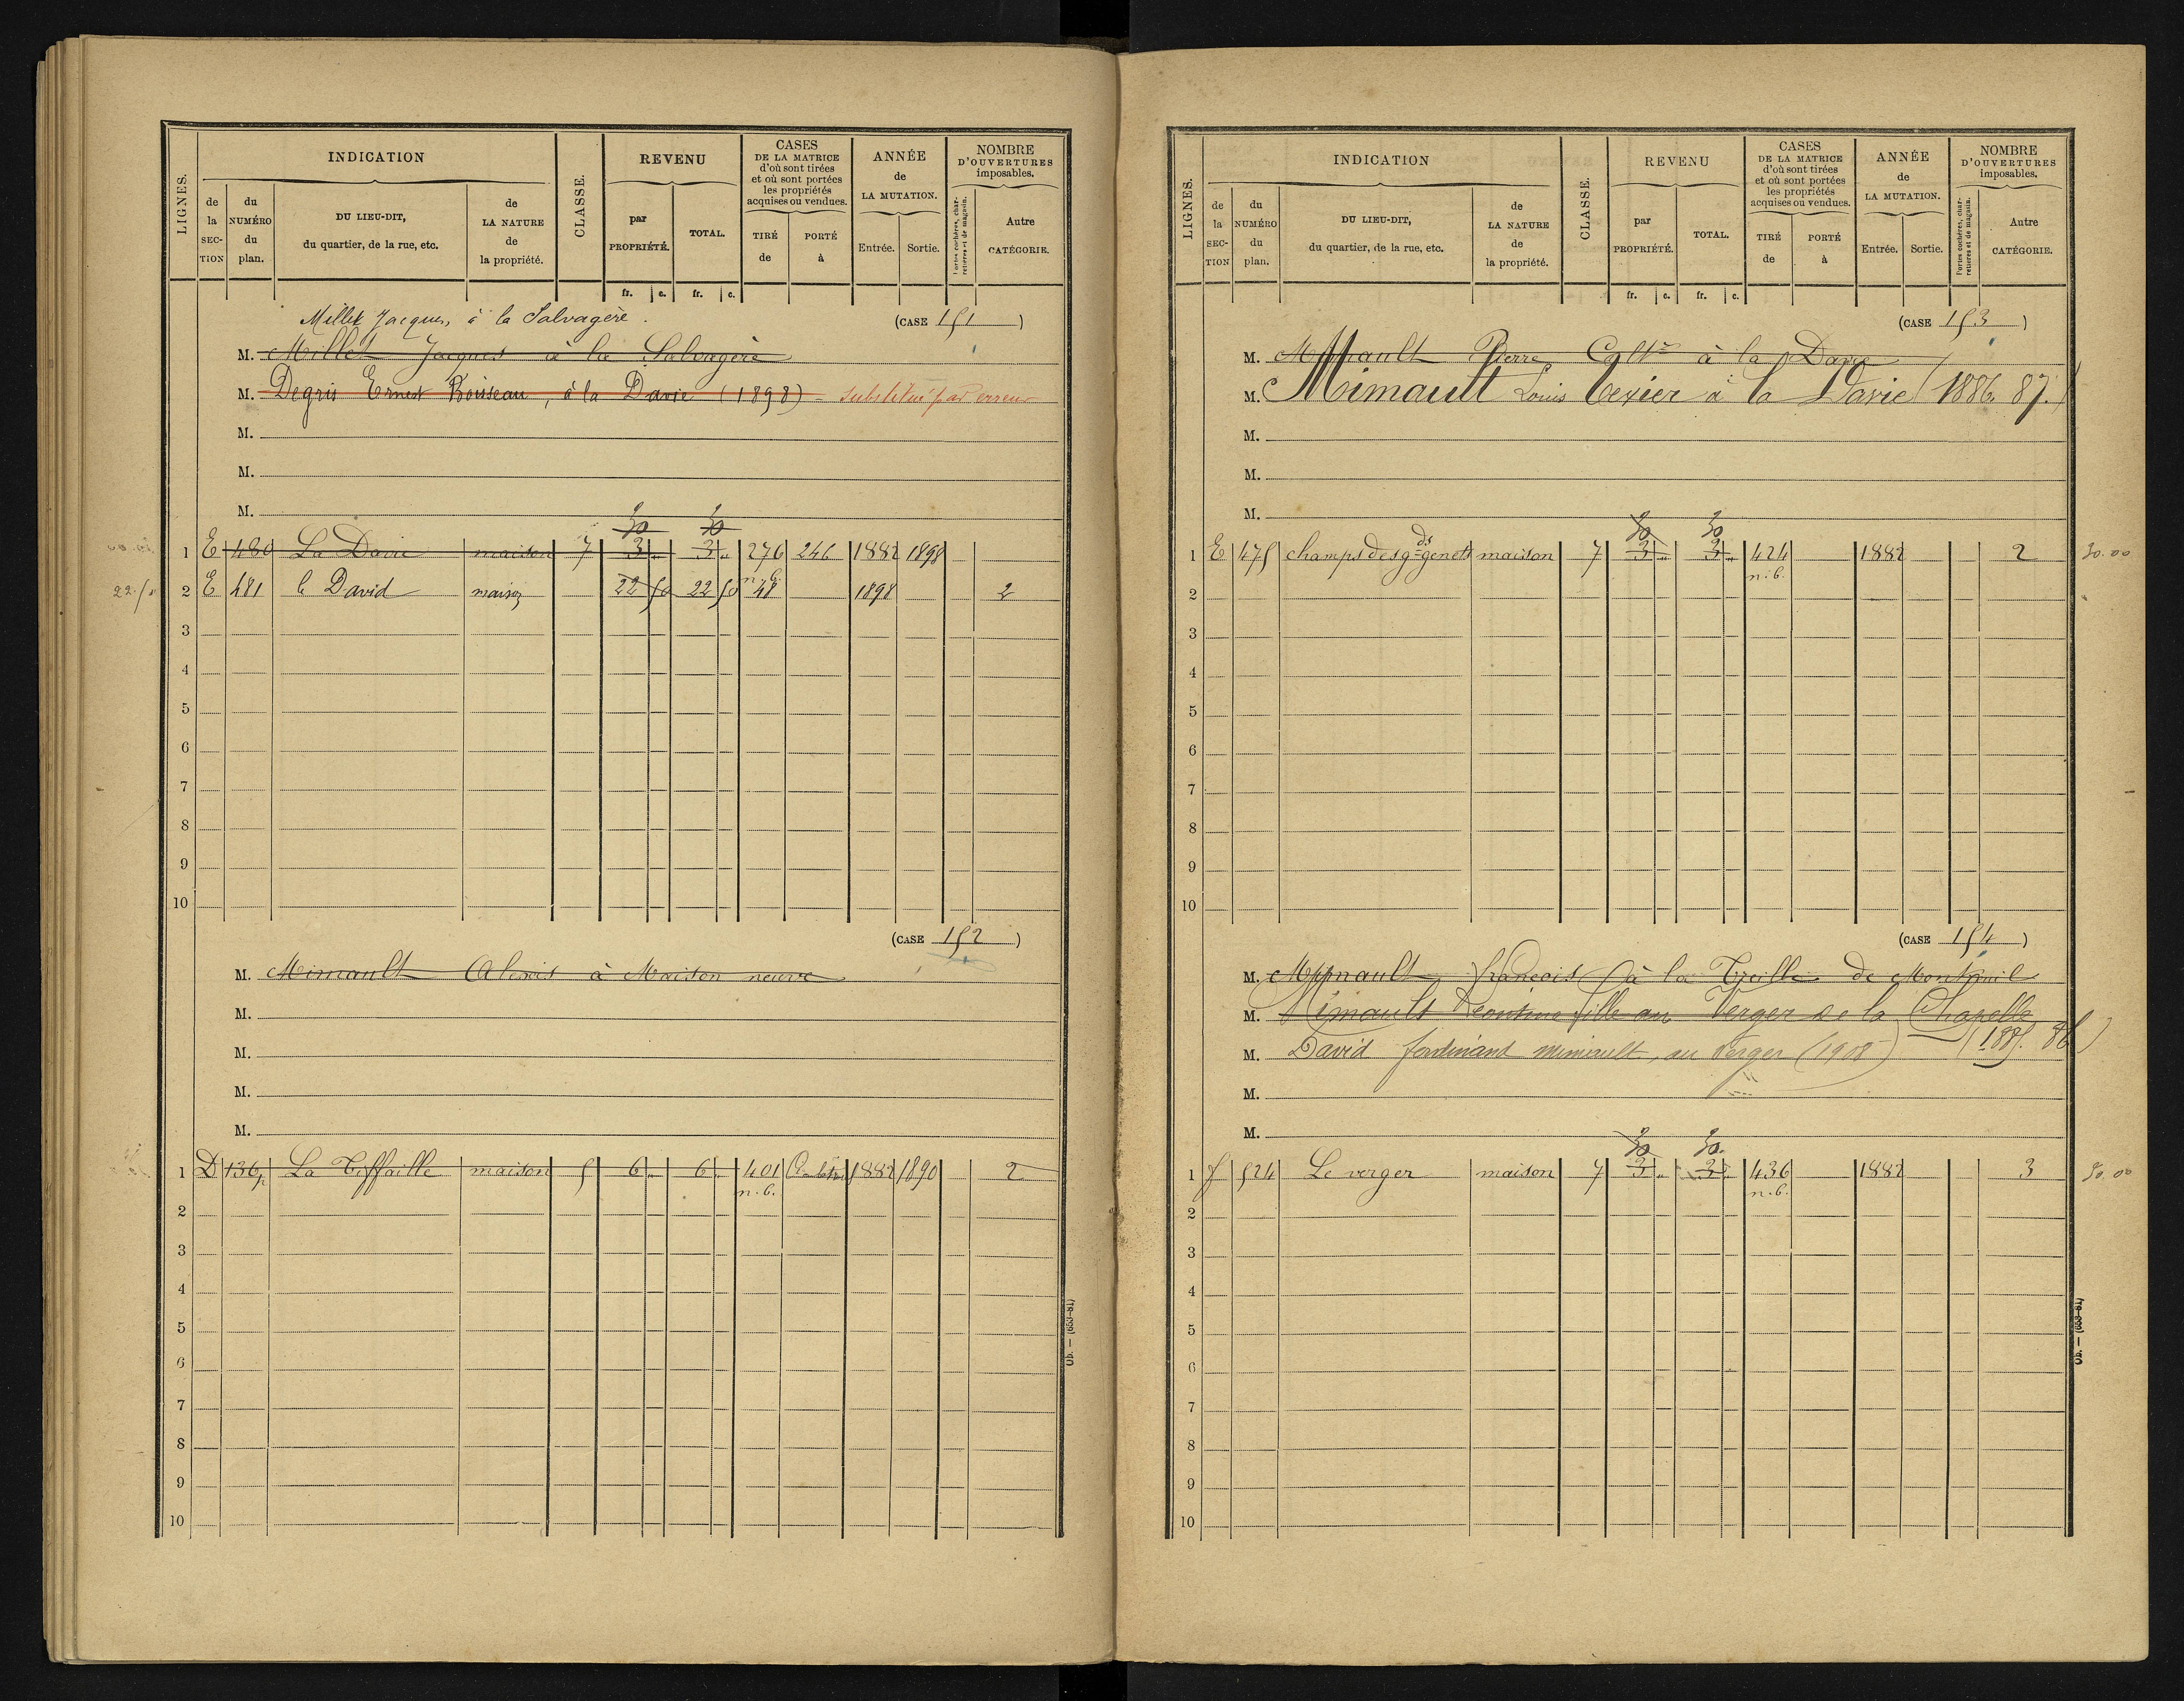 LIGNES.
INDICATION
de la SECTION
du NUMÉRO du plan.
DU LIEU-DIT, du quartier, de la rue, etc.
de LA NATURE de la propriété.
CLASSE.
REVENU
par PROPRIÉTÉ.
TOTAL.
CASES DE LA MATRICE d'où sont tirées et où sont portées les propriétés acquises ou vendues.
TIRÉ de
PORTÉ à
ANNÉE de LA MUTATION.
Entrée.
Sortie.
NOMBRE D'OUVERTURES imposables.
Portes cochères, charretières et de magasin.
Autre CATÉGORIE.
fr. c. fr. c.
Millet Jacques, à la Salvagère.
(CASE 151)
M. Millet Jacques à la Salvagère
M. Degris Ernest Boisseau, à la Davie (1898) substitué par erreur
M.
M.
M.
30 30
1 E 480 La Davie maison 7 3 " 3 " 276 246 1882 1898
22.50 2 E 481 le David maison 22 50 22 50 n.b. 48 1898 2
3
4
5
6
7
8
9
10
(CASE 152)
M. Mimault Alexis à Maison neuve
M.
M.
M.
M.
1 D 136p La Tiffaille maison 5 6 " 6 " 401 1882 1890 2
n.b.
2
3
4
5
6
7
8
9
10
Ob. — (653-81)
LIGNES.
INDICATION
de la SECTION
du NUMÉRO du plan.
DU LIEU-DIT, du quartier, de la rue, etc.
de LA NATURE de la propriété.
CLASSE.
REVENU
par PROPRIÉTÉ.
TOTAL.
CASES DE LA MATRICE d'où sont tirées et où sont portées les propriétés acquises ou vendues.
TIRÉ de
PORTÉ à
ANNÉE de LA MUTATION.
Entrée.
Sortie.
NOMBRE D'OUVERTURES imposables.
Portes cochères, charretières et de magasin.
Autre CATÉGORIE.
fr. c. fr. c.
(CASE 153)
M. Mimault Pierre à la Davie
M. Mimault Louis Texier à la Davie (1886. 87.)
M.
M.
M.
30 30
1 E 475 champs des gds genets maison 7 3 " 3 " 424 1882 2 30.00
n.b.
2
3
4
5
6
7
8
9
10
(CASE 154)
M. Mimault françois à la Treille de Montreuil
M. Mimault Léontine fille au Verger de la Chapelle
(1885. 86)
M. David ferdinant mimault, au Verger (1908)
M.
M.
30 30.
1 f 524 Le verger maison 7 3 " 3 " 436 1882 3 30.00
n.b.
2
3
4
5
6
7
8
9
10
Ob. — (653-81)